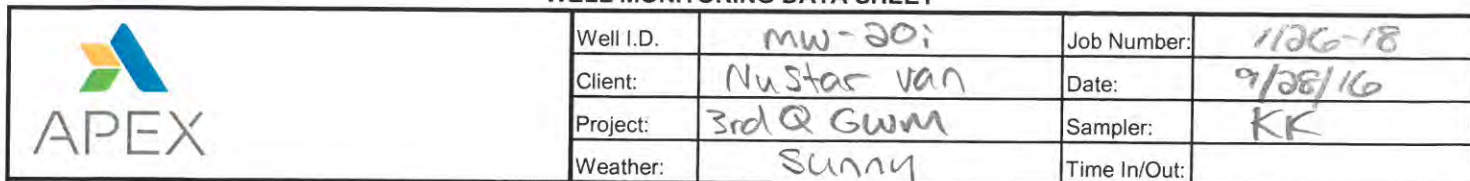 WELL MONITORING DATA SHEET
APEX
Well I.D. MW-20i Job Number: 1126-18
Client: NuStar Van Date: 9/28/16
Project: 3rd Q GWM Sampler: KK
Weather: Sunny Time In/Out: